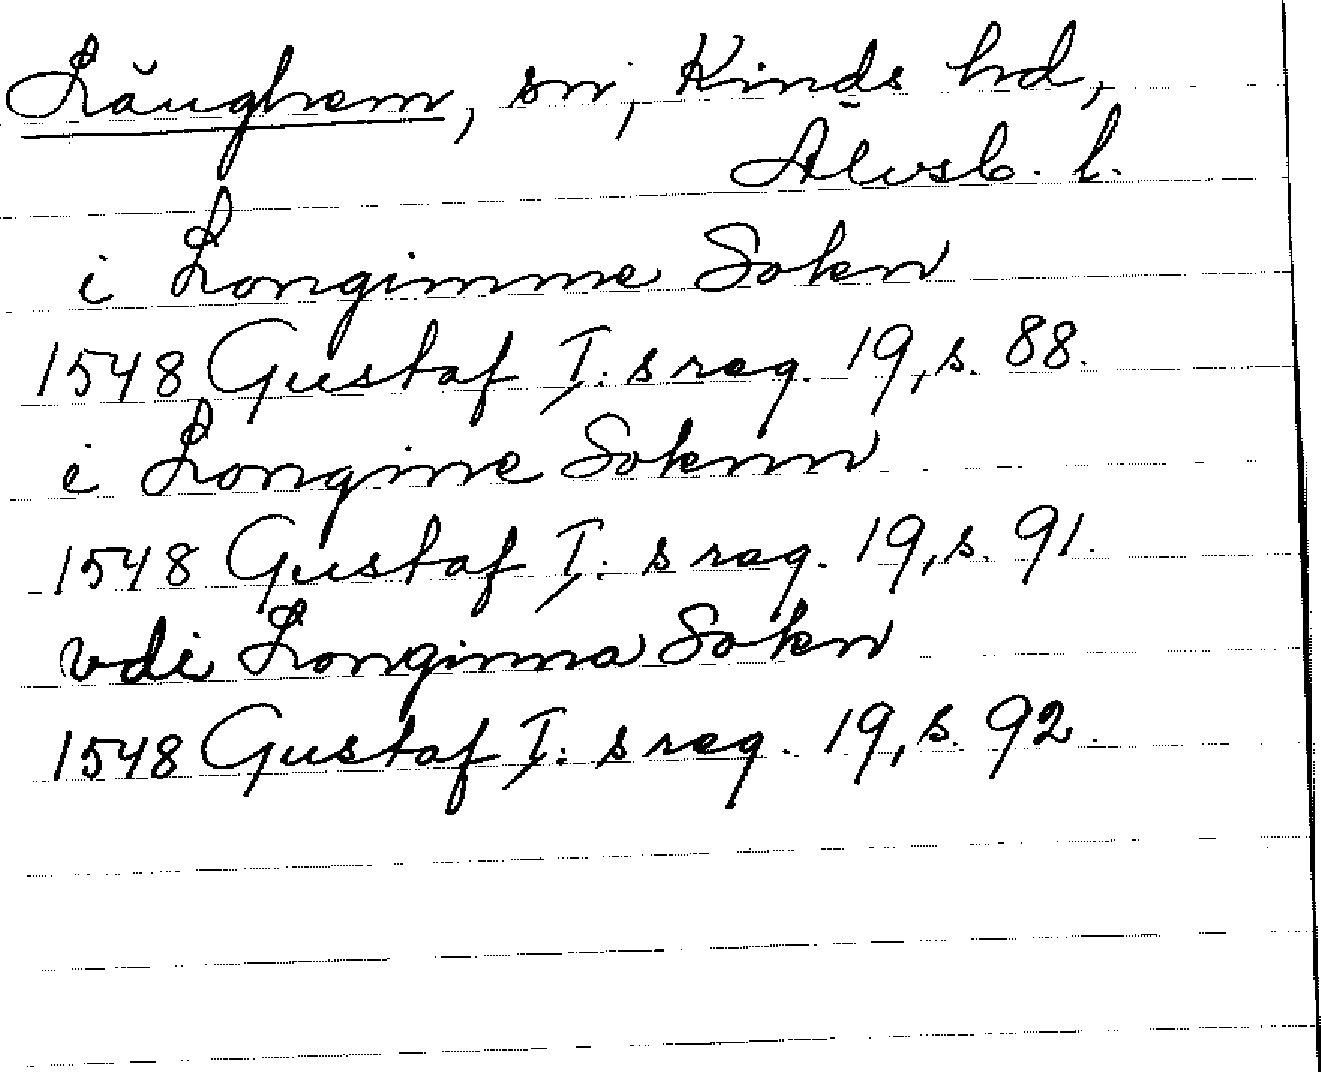 Långhem, sn, Kinds hd,
Älvsb. l.
i Longimme Sokn
1548 Gustaf I:s reg. 19, s. 88.
i Longime Soknn
1548 Gustaf I:s reg. 19, s. 91.
vdi Longinna Sokn
1548 Gustaf I:s reg. 19, s. 92.